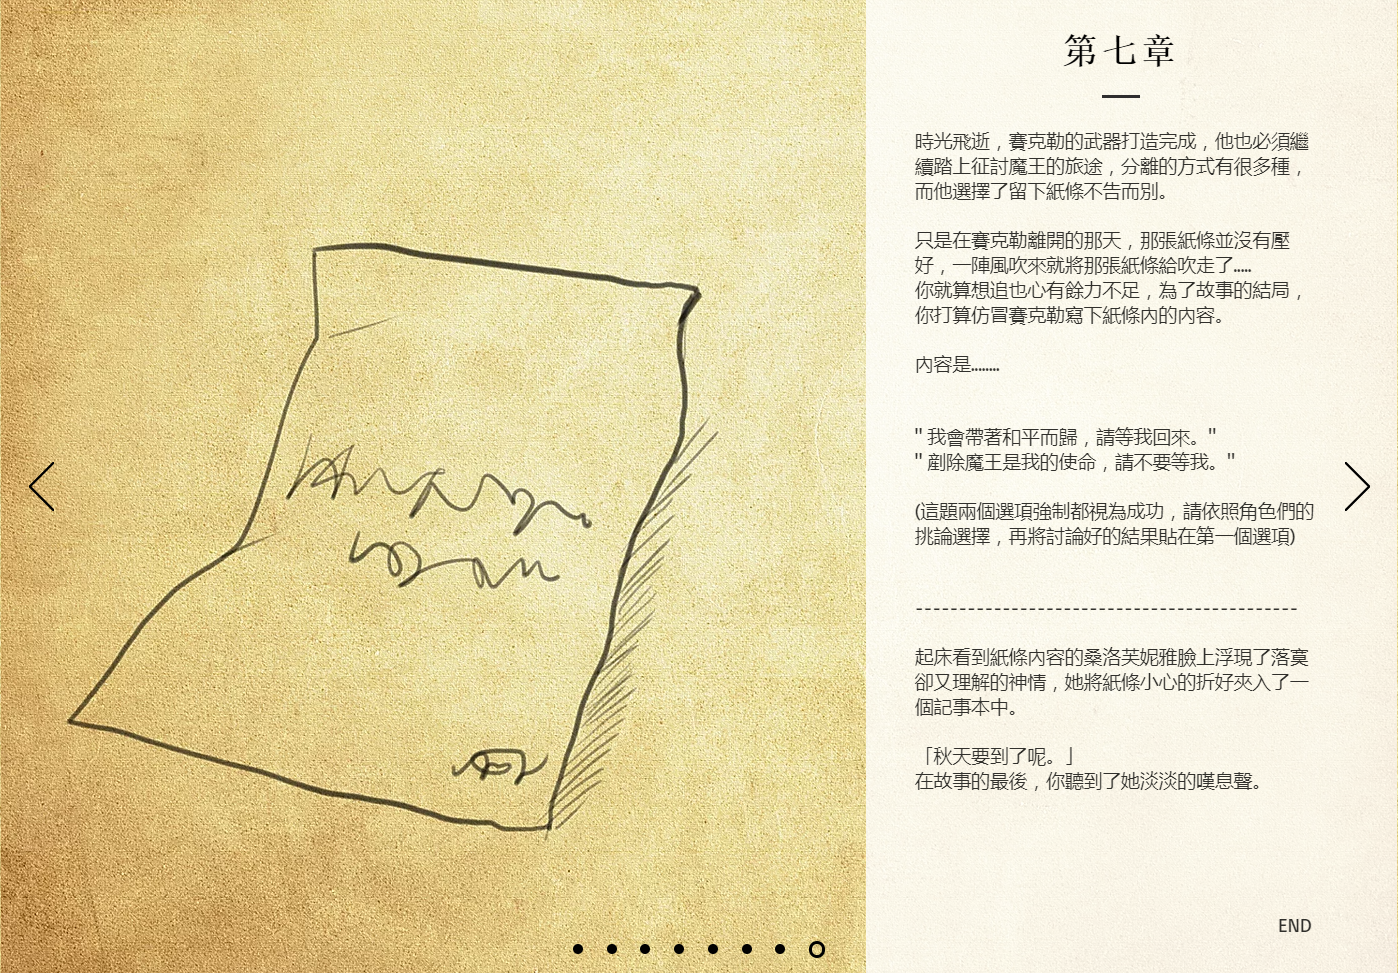 第七章
時光飛逝，賽克勒的武器打造完成，他也必須繼
續踏上征討魔王的旅途，分離的方式有很多種，
而他選擇了留下紙條不告而別。
只是在賽克勒離開的那天，那張紙條並沒有壓
好，一陣風吹來就將那張紙條給吹走了.....
你就算想追也心有餘力不足，為了故事的結局，
你打算仿冒賽克勒寫下紙條內的內容。
內容是........
" 我會帶著和平而歸，請等我回來。"
" 剷除魔王是我的使命，請不要等我。"
(這題兩個選項強制都視為成功，請依照角色們的
挑論選擇，再將討論好的結果貼在第一個選項)
--------------------------------------------
起床看到紙條內容的桑洛芙妮雅臉上浮現了落寞
卻又理解的神情，她將紙條小心的折好夾入了一
個記事本中。
「秋天要到了呢。」
在故事的最後，你聽到了她淡淡的嘆息聲。
END